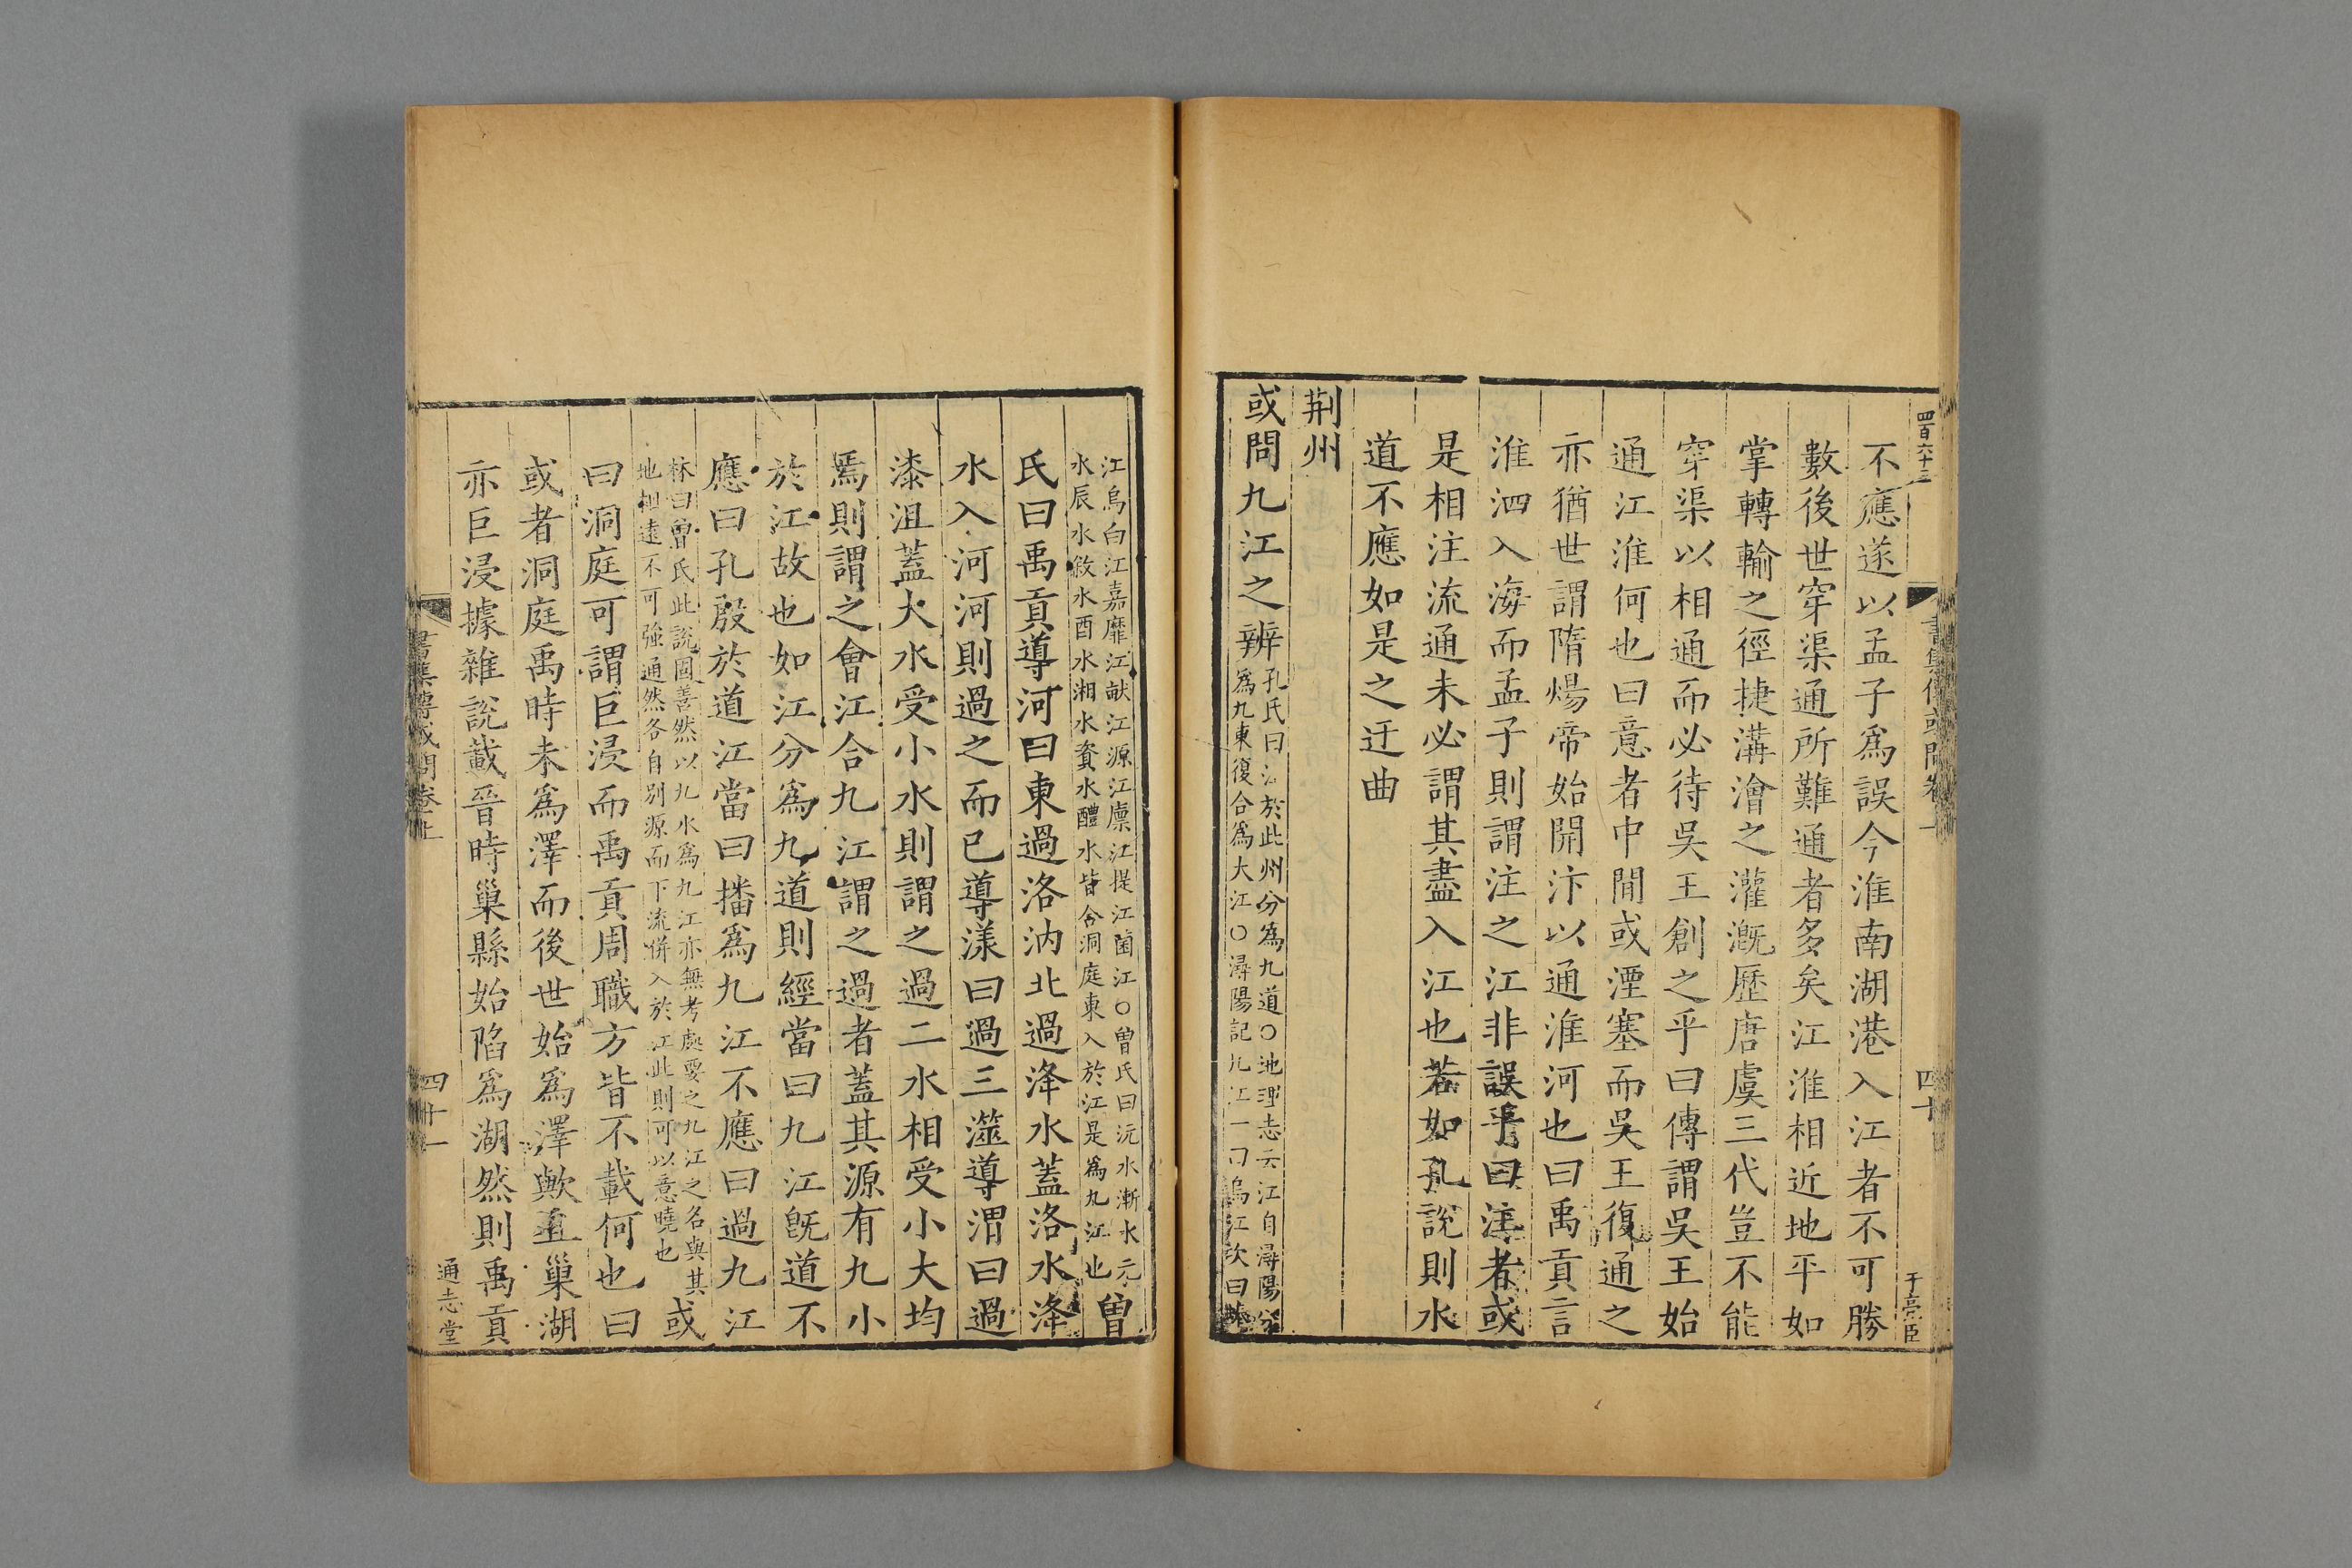 四百六十三
書集傳或問卷上
四十
于亮臣
不應遂以孟子爲誤今淮南湖港入江者不可勝
數後世穿渠通所難通者多矣江淮相近地平如
掌轉輸之徑捷溝澮之灌漑歷唐虞三代豈不能
穿渠以相通而必待吳王創之乎曰傳謂吳王始
通江淮何也曰意者中閒或湮塞而吳王復通之
亦猶世謂隋煬帝始開汴以通淮河也曰禹貢言
淮泗入海而孟子則謂注之江非誤乎曰注者或
是相注流通未必謂其盡入江也若如孔說則水
道不應如是之迂曲
荆州
或問九江之辨
孔氏曰江於此州分爲九道○地理志云江自潯陽分
爲九東復合爲大江○潯陽記九江一曰烏江次曰蜯
江烏白江嘉靡江畎江源江廩江提江菌江○曾氏曰沅水漸水元
水辰水敘水酉水湘水資水醴水皆合洞庭東入於江是爲九江也
曾
氏曰禹貢導河曰東過洛汭北過洚水蓋洛水洚
水入河河則過之而已導漾曰過三澨導渭曰過
漆沮蓋大水受小水則謂之過二水相受小大均
焉則謂之會江合九江謂之過者蓋其源有九小
於江故也如江分爲九道則經當曰九江旣道不
應曰孔殷於道江當曰播爲九江不應曰過九江
林曰曾氏此說固善然以九水爲九江亦無考處要之九江之名與其
地相遠不可強通然各自別源而下流併入於江此則可以意曉也
或
曰洞庭可謂巨浸而禹貢周職方皆不載何也曰
或者洞庭禹時未爲澤而後世始爲澤歟且巢湖
亦巨浸據雜說載晉時巢縣始陷爲湖然則禹貢
書集傳或問卷上
四十一
通志堂